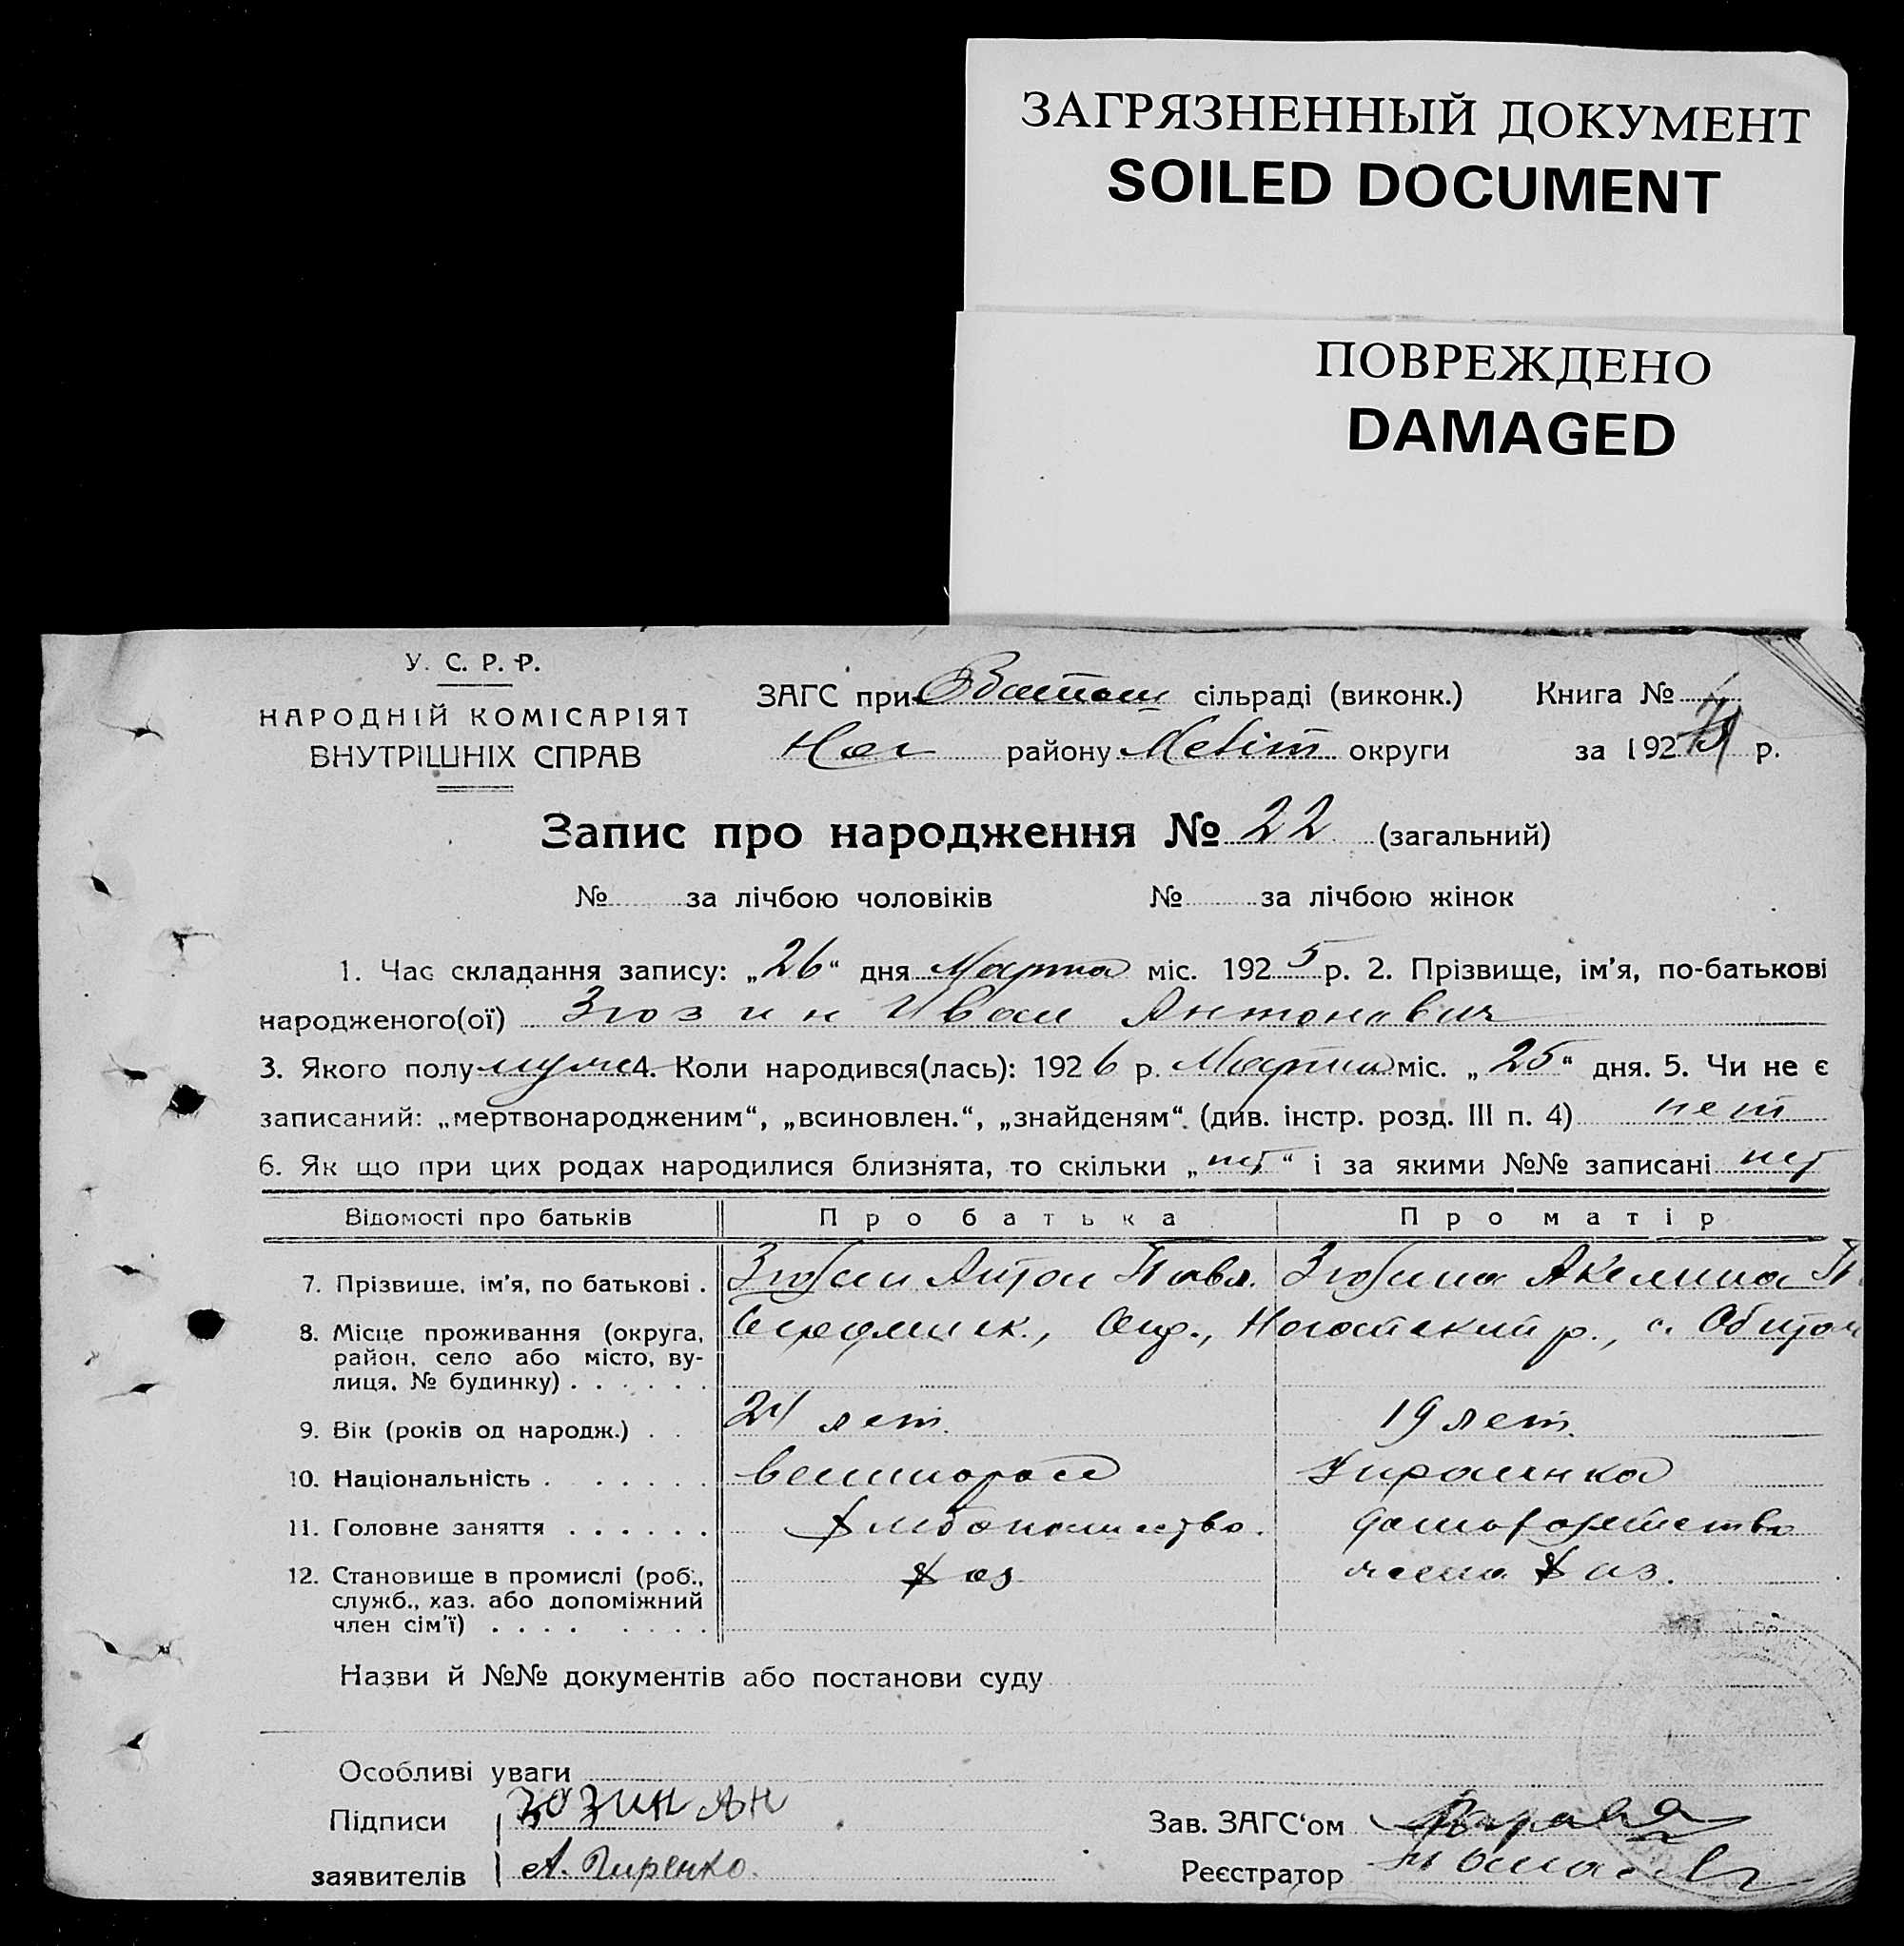 ЗАГРЯЗНЕННЫЙ ДОКУМЕНТ
SOILED DOCUMENT
ПОВРЕЖДЕНО
DAMAGED
У. С. Р. Р.
НАРОДНІЙ КОМІСАРІЯТ
ВНУТРІШНІХ СПРАВ
ЗАГС при сільраді (виконк.) Книга №
Ног району Меліт округи за 192 р.
Запис про народження № 22 (загальний)
№ за лічбою чоловіків № за лічбою жінок
1. Час складання запису: „26“ дня Марта міс. 1925 р. 2. Прізвище, ім'я, по-батькові
народженого(ої) Зюзин Иван Антонович
3. Якого полу муж 4. Коли народився(лась): 1926 р. Марта міс. „25“ дня. 5. Чи не є
записаний: „мертвонародженим“, „всиновлен.“, „знайденям“. (див. інстр. розд. III п. 4) нет
6. Як що при цих родах народилися близнята, то скільки „нет“ і за якими №№ записані нет
Відомості про батьків Про батька Про матір
7. Прізвище, ім'я, по батькові . Зюзин Антон Павл. Зюзина Акелина
8. Місце проживання (округа, район, село або місто, вулиця, № будинку) . . . . . . Окр., Ногайский р., с.
9. Вік (років од народж.) . . 24 лет. 19 лет.
10. Національність . . . . . . . великоросс Украинка
11. Головне заняття . . . . . . хлебопашество. домохозяйство
12. Становище в промислі (роб., служб., хаз. або допоміжний член сім'ї) . . . . . . . . хаз члена хаз.
Назви й №№ документів або постанови суду
Особливі уваги
Підписи Зюзин Ан Зав. ЗАГС'ом
заявителів А. Гиренко. Реєстратор